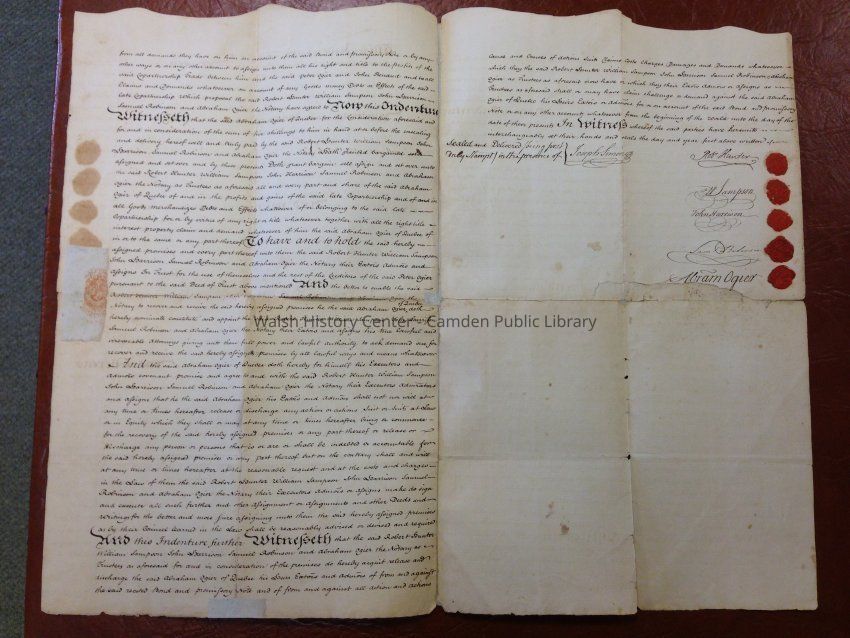 from all demands they have on him on account of the said Bond and promissory Note or by any
other ways or on any other account to assign unto them all his right and title to the profits of the
said Copartnership Trade between him and the said Peter Ogier and John and to all
Claims and Demands whatsoever on account of any Goods money Debts or Effects of the said
late Copartnership which proposal the said Robert Hunter William Sampson John Harrison
Samuel Robinson and Abraham Ogier the Notary have agreed to Now this Indenture
Witnesseth that the said Abraham Ogier of Quebec for the Consideration aforesaid and
for and in consideration of the sum of five shillings to him in hand at or before the ensealing
and delivery hereof well and truly paid by the said Robert Hunter William Sampson John
Harrison Samuel Robinson and Abraham Ogier the Notary Hath granted bargained sold
assigned and set over and by these presents Doth grant bargain sell assign and set over unto
the said Robert Hunter William Sampson John Harrison Samuel Robinson and Abraham
Ogier the Notary as Trustees as aforesaid all and every part and share of the said Abraham
Ogier of Quebec of and in the profits and gains of the said late Copartnership and of and in
all Goods Merchandizes Debts and Effects whatsoever of or belonging to the said late
Copartnership for or by virtue of any right or title whatsoever together with all the right title
interest property claim and demand whatsoever of him the said Abraham Ogier of Quebec of
in or to the same or any part thereof To have and to hold the said hereby
assigned premises and every part thereof unto them the said Robert Hunter William Sampson
John Harrison Samuel Robinson and Abraham Ogier the Notary their Exors Admors and
assigns In Trust for the use of themselves and the rest of the Creditors of the said Peter Ogier
pursuant to the said Deed of Trust above mentioned And the better to enable the said
Robert Hunter William Sampson John Samuel Robinson and Abraham Ogier the
Notary to recover and receive the said hereby assigned premises he the said Abraham Ogier of Quebec doth
hereby nominate constitute and appoint the said
Samuel Robinson and Abraham Ogier the Notary their Exors and assigns his true lawful and
irrevocable Attorneys giving unto them full power and lawful authority to ask demand sue for
recover and receive the said hereby assigned premises by all lawful ways and means whatsoever
And the said Abraham Ogier of Quebec doth hereby for himself his Executors and
Admors covenant promise and agree to and with the said Robert Hunter William Sampson
John Harrison Samuel Robinson and Abraham Ogier the Notary their Executors Admors
and assigns that he the said Abraham Ogier his Exors and Admors shall not nor will at
any time or times hereafter release or discharge any action or actions Suit or Suits at Law
or in Equity which they shall or may at any time or times hereafter bring or commence
for the recovery of the said hereby assigned premises or any part thereof or release or
discharge any person or persons that is or are or shall be indebted or accountable for
the said hereby assigned premises or any part thereof but on the contrary shall and will
at any time or times hereafter at the reasonable request and at the costs and charges
in the Law of them the said Robert Hunter William Sampson John Harrison Samuel
Robinson and Abraham Ogier the Notary their Executors Admors or assigns make do sign
and execute all such further and other Assignment or Assignments and other Deeds and
Writings for the better and more sure assigning unto them the said hereby assigned premises
as by their Counsel learned in the Law shall be reasonably advised or devised and required
And this Indenture further Witnesseth that the said Robert Hunter
William Sampson John Harrison Samuel Robinson and Abraham Ogier the Notary as
Trustees as aforesaid for and in consideration of the premises do hereby acquit release and
discharge the said Abraham Ogier of Quebec his Heirs Exors and Admors of from and against
the said recited Bond and promissory Note and of from and against all action and actions
cause and causes of actions Suits Claims Costs Charges Damages and Demands whatsoever
which they the said Robert Hunter William Sampson John Harrison Samuel Robinson Abraham
Ogier as Trustees as aforesaid now have or which they their Exors Admors or assigns as
Trustees as aforesaid shall or may have claim challenge or demand against the said Abraham
Ogier of Quebec his Heirs Exors or Admors for or on account of the said Bond and promissory
Note or on any other account whatsoever from the beginning of the world unto the day of the
date of these presents In Witness whereof the said parties have hereunto
interchangeably set their hands and seals the day and year first above written
Sealed and Delivered being first
Duly Stampt in the presence of
Joseph Simons
Robt Hunter
Wm Sampson
John Harrison
Abram Ogier
Walsh History Center - Camden Public Library